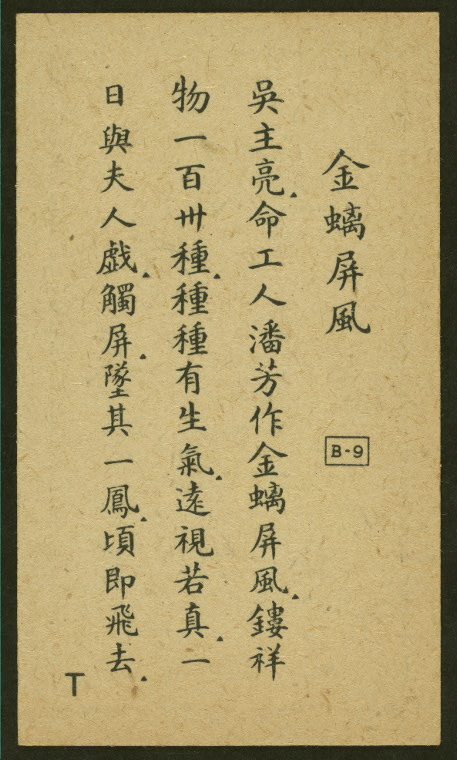 金螭屏風
B-9
吳主亮.命工人潘芳作金螭屏風.鏤祥
物一百卅種.種種有生氣.遠視若真.一
日與夫人戯.觸屏.墜其一鳳.頃即飛去.
T